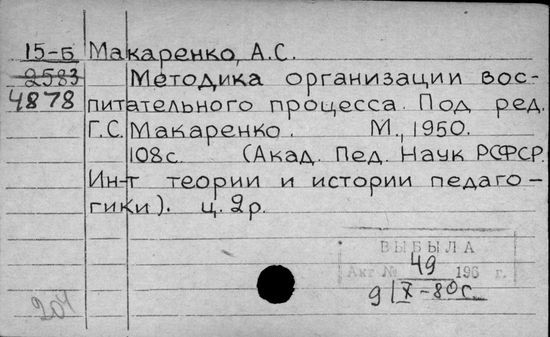 15-Б Макаренко, А.С.
2583 Методика организации вос-
4878 питательного процесса. Под ред.
Г.С. Макаренко. М., 1950.
108с. (Акад. Пед. Наук РСФСР.
Ин-т теории и истории педаго-
гики). ц. 2р.
ВЫБЫЛА
Акт № 49 196 г.
9/X-80г.
204